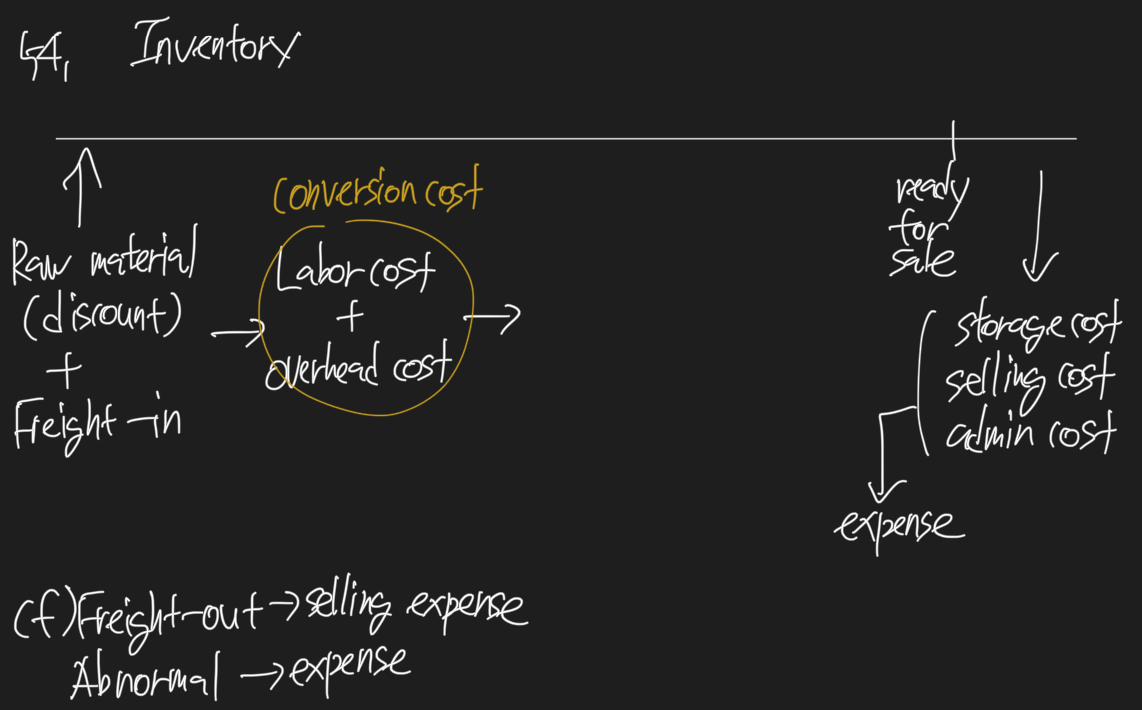 §4, Inventory
conversion cost
Raw material
(discount)
+
Freight-in
Labor cost
+
overhead cost
ready
for
sale
storage cost
selling cost
admin cost
expense
(cf) Freight-out → selling expense
Abnormal → expense